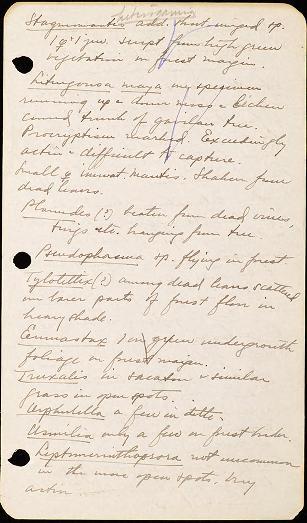 Stagmomantis add. short winged sp.
1 ♀ + 1 juv. swept from high green
vegetation in forest margin.
Liturgousa maya my specimen
running up & down moss & lichen
covered trunk of gavilan tree.
Procrypticism marked. Exceedingly
active & difficult to capture.
Small ♀ immat. Mantis. Shaken from
dead leaves.
Planudes (?) beaten from dead vines,
twigs etc. hanging from tree
Pseudophasma sp. flying in forest
Tylotettix (?) among dead leaves scattered
on barer parts of forest floor in
heavy shade.
Eumastax 1 on green undergrowth
foliage on forest margin.
Truxalis in sacaton & similar
grass in open spots.
Orphulella a few in ditto.
Osmilia only a few on forest border.
Leptomerinthoprora not uncommon
in the more open spots. Very
active